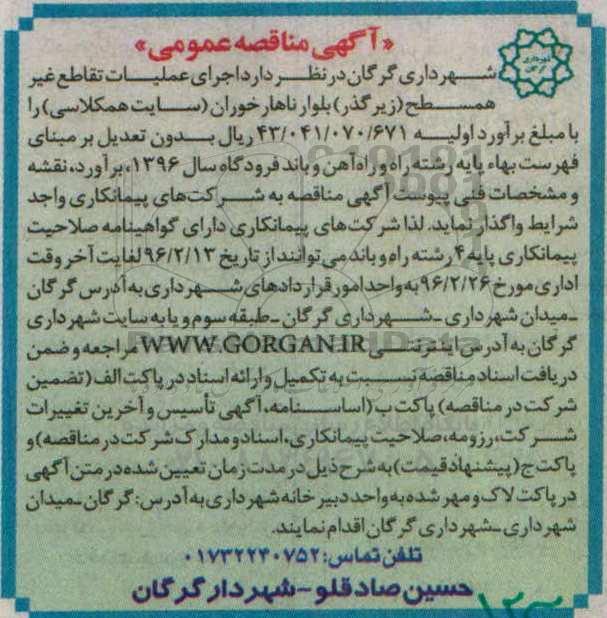 «آگهی مناقصه عمومی»
شهرداری گرگان در نظر دارد اجرای عملیات تقاطع غیر
همسطح (زیر گذر) بلوار ناهارخوران (سایت همکلاسی) را
با مبلغ برآورد اولیه ۴۳/۰۴۱/۰۷۰/۶۷۱ ریال بدون تعدیل بر مبنای
فهرست بهاء پایه رشته راه و راه آهن و باند فرودگاه سال ۱۳۹۶، برآورد، نقشه
و مشخصات فنی پیوست آگهی مناقصه به شرکت‌های پیمانکاری واجد
شرایط واگذار نماید. لذا شرکت‌های پیمانکاری دارای گواهینامه صلاحیت
پیمانکاری پایه ۴ رشته راه و باند می‌توانند از تاریخ ۹۶/۲/۱۳ لغایت آخر وقت
اداری مورخ ۹۶/۲/۲۶ به واحد امور قراردادهای شهرداری به آدرس گرگان
ـ میدان شهرداری ـ شهرداری گرگان ـ طبقه سوم و یا به سایت شهرداری
گرگان به آدرس اینترنتی WWW.GORGAN.IR مراجعه و ضمن
دریافت اسناد مناقصه نسبت به تکمیل و ارائه اسناد در پاکت الف (تضمین
شرکت در مناقصه) پاکت ب (اساسنامه، آگهی تأسیس و آخرین تغییرات
شرکت، رزومه، صلاحیت پیمانکاری، اسناد و مدارک شرکت در مناقصه) و
پاکت ج (پیشنهاد قیمت) به شرح ذیل در مدت زمان تعیین شده در متن آگهی
در پاکت لاک و مهر شده به واحد دبیرخانه شهرداری به آدرس: گرگان ـ میدان
شهرداری ـ شهرداری گرگان اقدام نمایند.
تلفن تماس: ۰۱۷۳۲۲۴۰۷۵۲
حسین صادقلو - شهردار گرگان